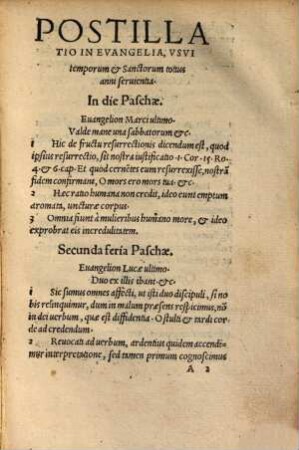 POSTILLA
TIO IN EVANGELIA, VSVI
temporum & Sanctorum totius
anni seruientia.
In die Paschæ.
Euangelion Marci ultimo.
Valde mane una sabbatorum &c.
1 Hic de fructu resurrectionis dicendum est, quod
ipsius resurrectio, sit nostra iustificatio 1. Cor. 15. Ro.
4. & 6. cap. Et quod cernẽtes eum resurrexisse, nostrã
fidem confirmant, O mors ero mors tua &c.
2 Hæc ratio humana non credit, ideo eunt emptum
aromata, uncturæ corpus.
3 Omnia fiunt à mulieribus humano more, & ideo
exprobrat eis incredulitatem.
Secunda feria Paschæ.
Euangelion Lucæ ultimo.
Duo ex illis ibant &c.
1 Sic sumus omnes affecti, ut isti duo discipuli, si no
bis relinquimur, dum in malum præsens respicimus, nõ
in dei uerbum, quæ est diffidentia. O stulti & tardi cor
de ad credendum.
2 Reuocati ad uerbum, ardentius quidem accendi=
mur interpretatione, sed tamen primum cognoscimus
A 2